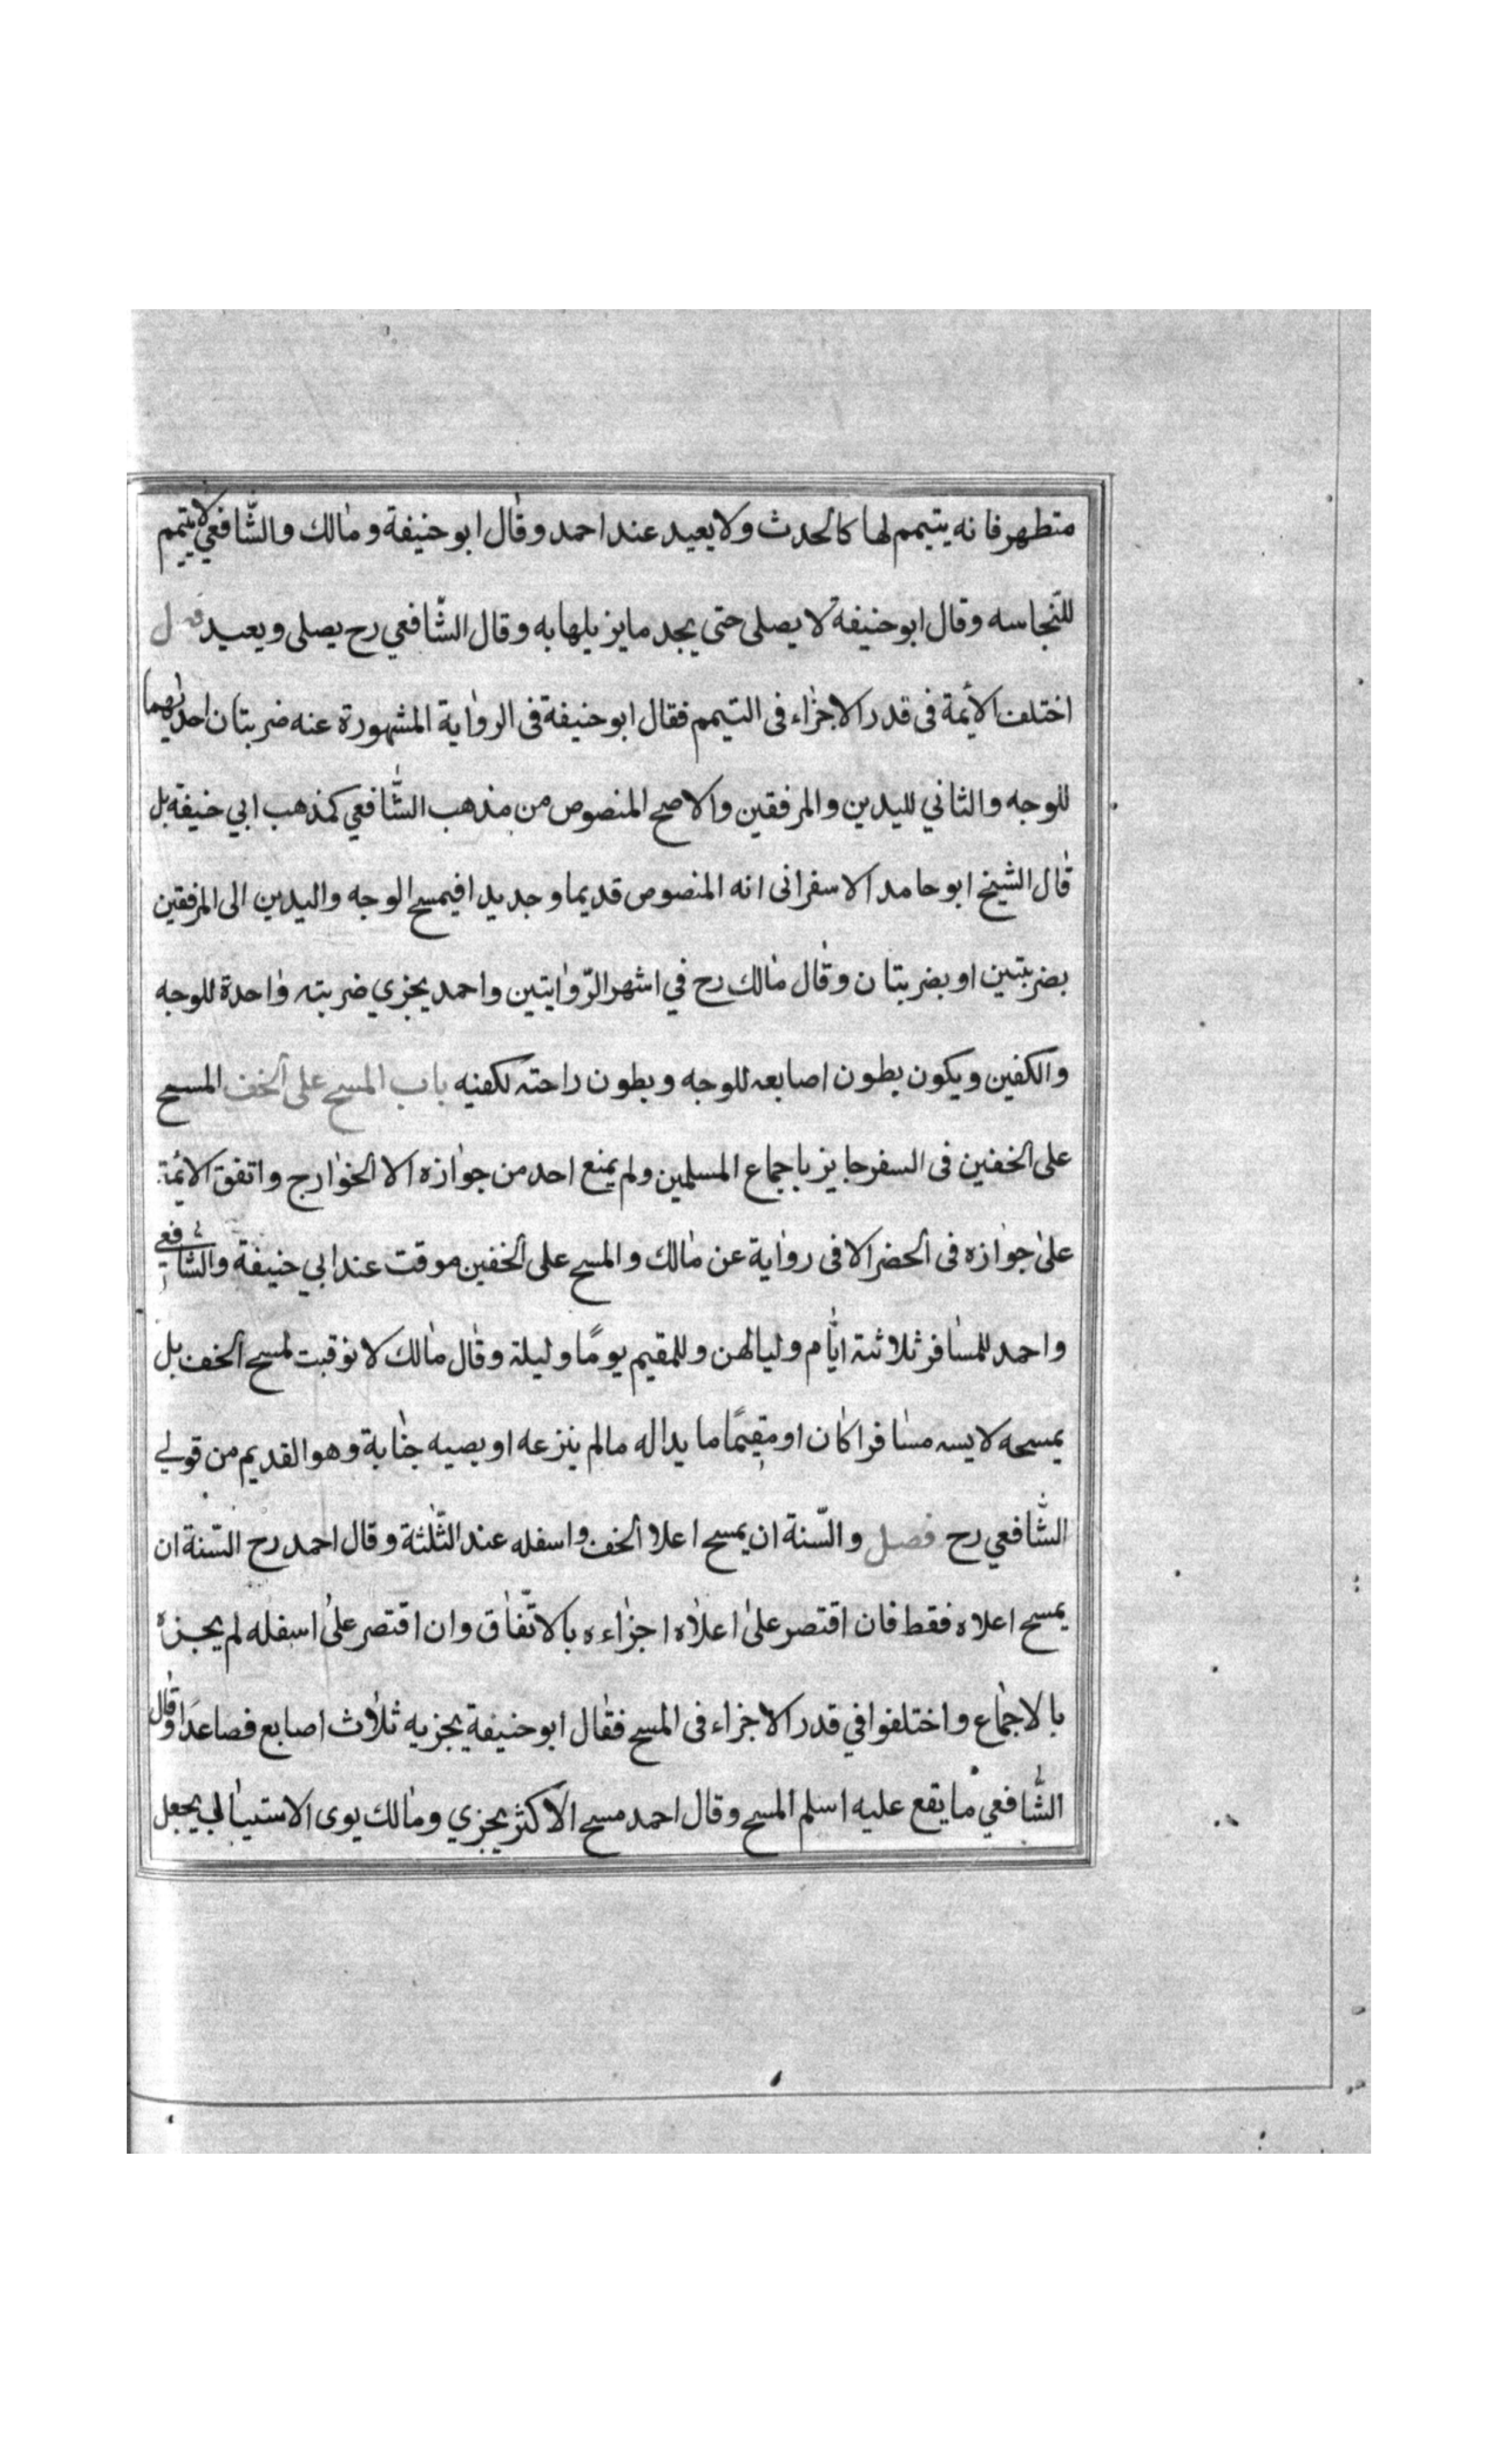 متطهر فانه يتيمم لها كالحدث ولا يعيد عند احمد وقال ابو حنيفة ومالك والشافعي لا يتيمم
للنجاسه وقال ابو حنيفة لا يصلى حتى يجد ما يزيلها به وقال الشافعي رح يصلى ويعيد فصل
اختلف الأئمة فى قدر الاجزاء فى التيمم فقال ابو حنيفة فى الرواية المشهورة عنه ضربتان احديهما
للوجه والثاني لليدين والمرفقين والاصح المنصوص من مذهب الشافعي كمذهب ابي حنيفة بل
قال الشيخ ابو حامد الاسفرانى انه المنصوص قديما وجديدا فيمسح الوجه واليدين الى المرفقين
بضربتين او بضربتان وقال مالك رح في اشهر الرّوايتين واحمد يجزي ضربته واحدة للوجه
والكفين ويكون بطون اصابعه للوجه وبطون راحته لكفنيه باب المسح على الخف المسح
على الخفين فى السفر جايز باجماع المسلمين ولم يمنع احد من جوازه الا الخوارج واتفق الائمة
على جوازه فى الحضر الا فى رواية عن مالك والمسح على الخفين موقت عند ابي حنيفة والشافعي
واحمد للمسافر ثلاثة ايام ولياليهن وللمقيم يومًا وليلة وقال مالك لا توقيت لمسح الخف بل
يمسحه لابسه مسافرا كان او مقيمًا ما يداله مالم ينزعه او يصيبه جنابة وهو القديم من قولي
الشافعي رح فصل والسّنة ان يمسح اعلا الخف واسفله عند الثّلثة وقال احمد رح السّنة ان
يمسح اعلاه فقط فان اقتصر على اعلاه اجزاءه بالاتّفاق وان اقتصر على اسفله لم يجزه
بالاجماع واختلفوا في قدر الاجزاء فى المسح فقال ابو حنيفة يجزيه ثلاث اصابع فصاعدًا وقال
الشّافعي ما يقع عليه اسلم المسح وقال احمد مسح الاكثر يجزي ومالك يوى الاستيال يجعل